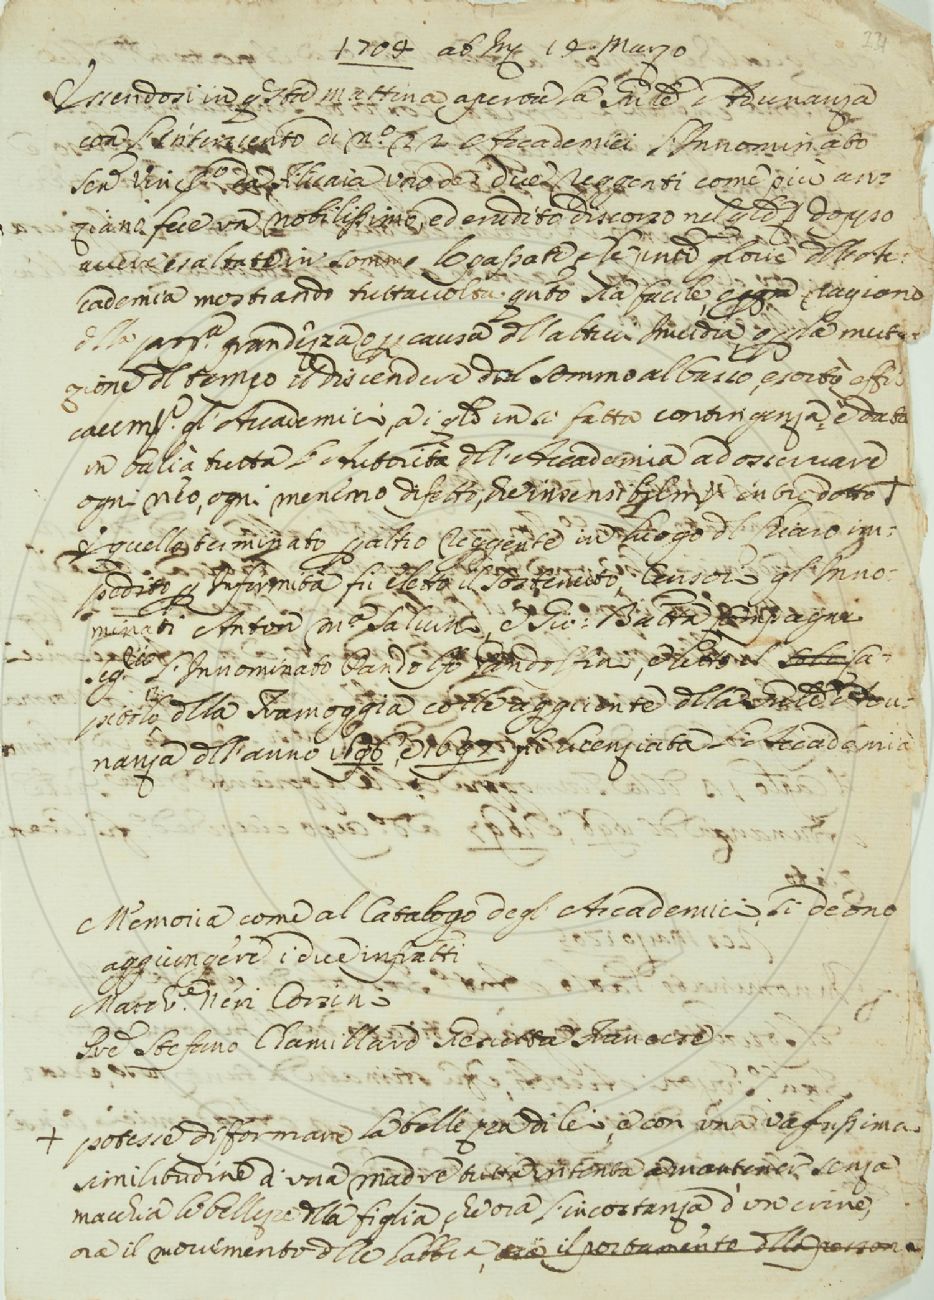 231
1704 ab Inc 14 Marzo
Essendosi in q.sta mattina aperta la Adunanza
con l'Intervento di N.o 22 Accademici l'Innominato
Sen.r Vin.o da Filicaia uno de due Reggenti come più an-
ziano fece un nobilissimo, ed erudito discorso nel q.le doppo
avere esaltate in sommo le passate, e le glorie dell'Ac-
cademia mostrando tuttavolta q.nto sia facile, cagione
della grandezza, o p causa dell'altrui Invidia, o p la muta-
zione del tempo il discendere dal sommo al basso, esortò effi-
cacem.te gl'Accademici, a i q.li in si fatta contingenza è data
in balia tutta l'Autorità dell'Accademia ad osservare
ogni neo, ogni menimo difetto, che insensibilm.te introdotto +
E quello terminato p altro Reggente in luogo del im-
pedito p Infermità fù eletto il Sostenuto, Censori gl'Inno-
minati Anton M.a Salvini, e Gio: Batta Fonpagni
Seg.rio l'Innominato Bandolfo Pandolfini, e letto il sa-
piolo della Tramoggia coll'aggiunte della Adu-
nanza dell'anno 1696, e 1697 fù licenziata l'Accademia
Memoria come al Catalogo degl'Accademici, si deono
aggiungere i due infratti
March.e Neri Corsini
Pre Stefano Chamillard Gesuita Franzese
+ potesse difformare la bellezza di lei, e con una vaghissima
similitudine d'una madre tutta intenta a mantener senza
macchia le bellezze della figlia, che ora l'incostanza d'un crine,
ora il movimento delle labbra, ora il portamento della persona